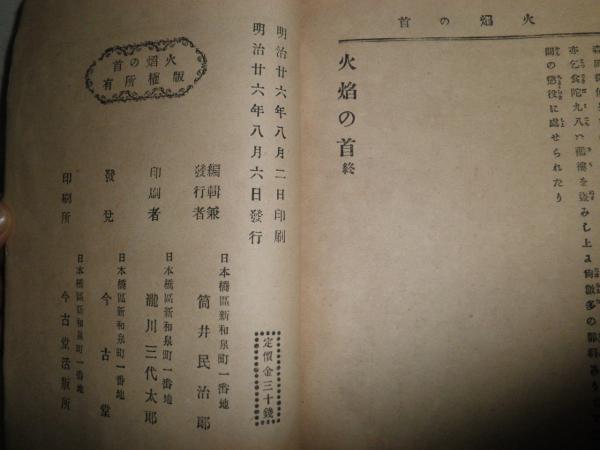 首の焔火
間の懲役に處せられたり
火焔の首終
明治廿六年八月二日印刷
明治廿六年八月六日發行
定價金三十錢
編輯兼
發行者
日本橋區新和泉町一番地
筒井民治郎
印刷者
日本橋區新和泉町一番地
瀧川三代太郎
發兌
日本橋區新和泉町一番地
今古堂
印刷所
日本橋區新和泉町一番地
今古堂活版所
首の焔火
有所權版